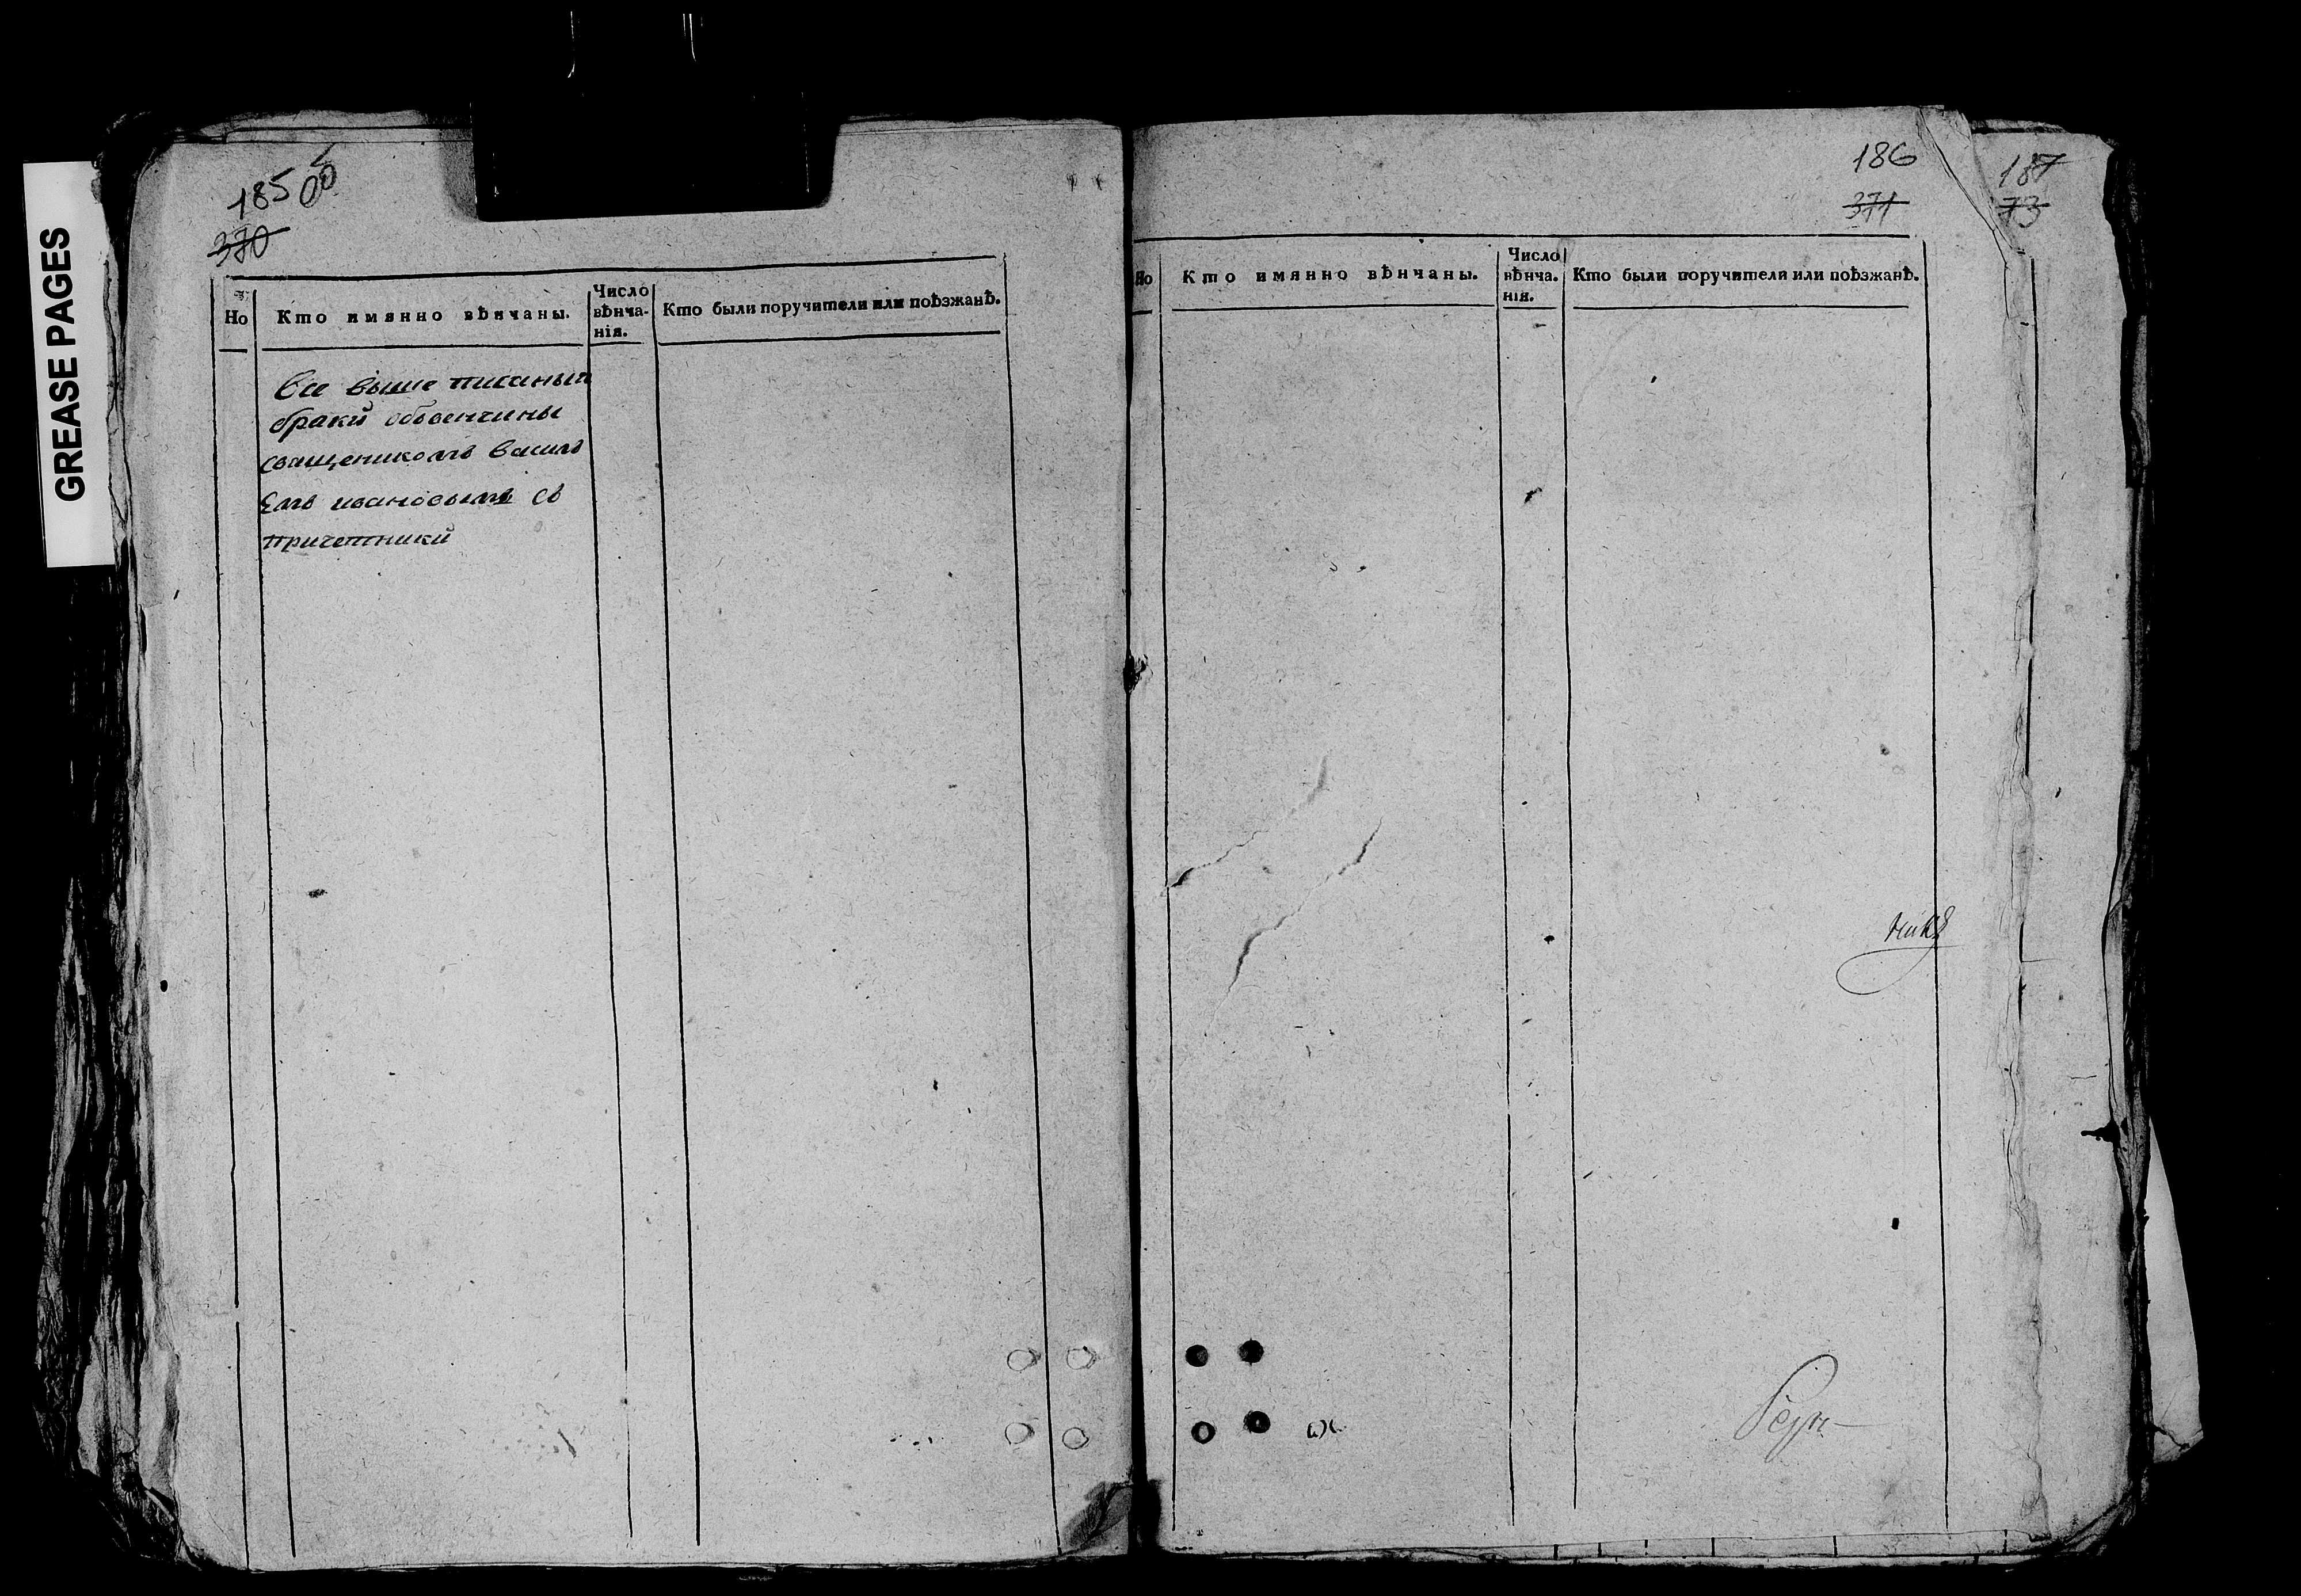 GREASE PAGES
185 об
370
Но
Кто имянно вѣнчаны.
Число
вѣнча-
нія.
Кто были поручители или поѣзжанѣ.
Все выше писаныи
браки обвенчины
священикомъ василь
емъ ивановымъ съ
причетники
186
371
Но
Кто имянно вѣнчаны.
Число
вѣнча.
нія.
Кто были поручители или поѣзжанѣ.
187
73